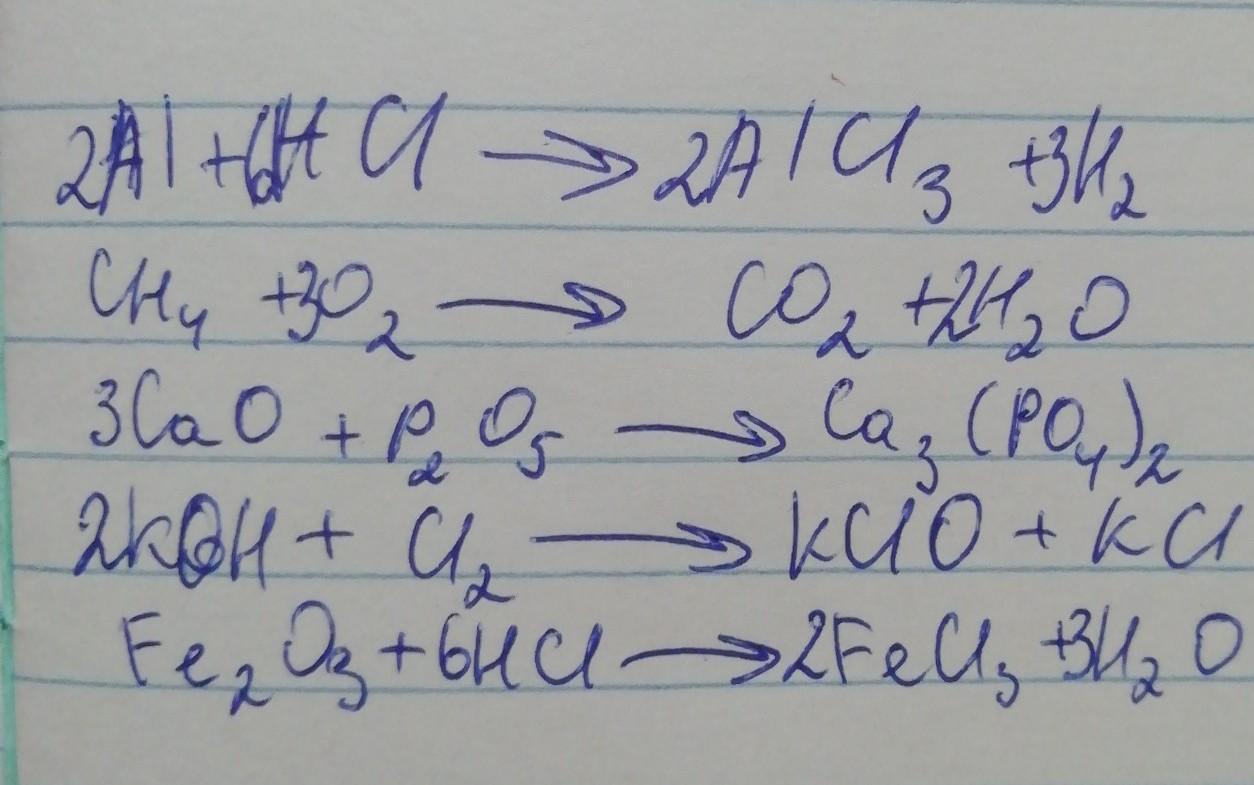 2Al + 6HCl → 2AlCl₃ + 3H₂
CH₄ + 3O₂ → CO₂ + 2H₂O
3CaO + P₂O₅ → Ca₃(PO₄)₂
2KOH + Cl₂ → KClO + KCl
Fe₂O₃ + 6HCl → 2FeCl₃ + 3H₂O